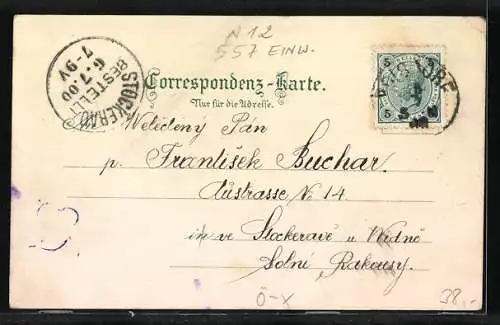 N12
557 EINW.
STOCKERAU
BESTELLT
6.7.00
7-9V
5
5
Correspondenz-Karte.
Nur für die Adresse.
Velectěný Pán
p. František Buchar
Austrasse № 14
ve Stockeravě u Vídně
Dolní Rakousy.
Ö-X
38,-